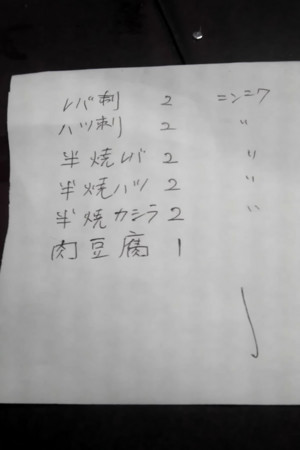 レバ刺 2 ニンニク
ハツ刺 2 〃
半焼レバ 2 〃
半焼ハツ 2 〃
半焼カシラ 2 〃
肉豆腐 1